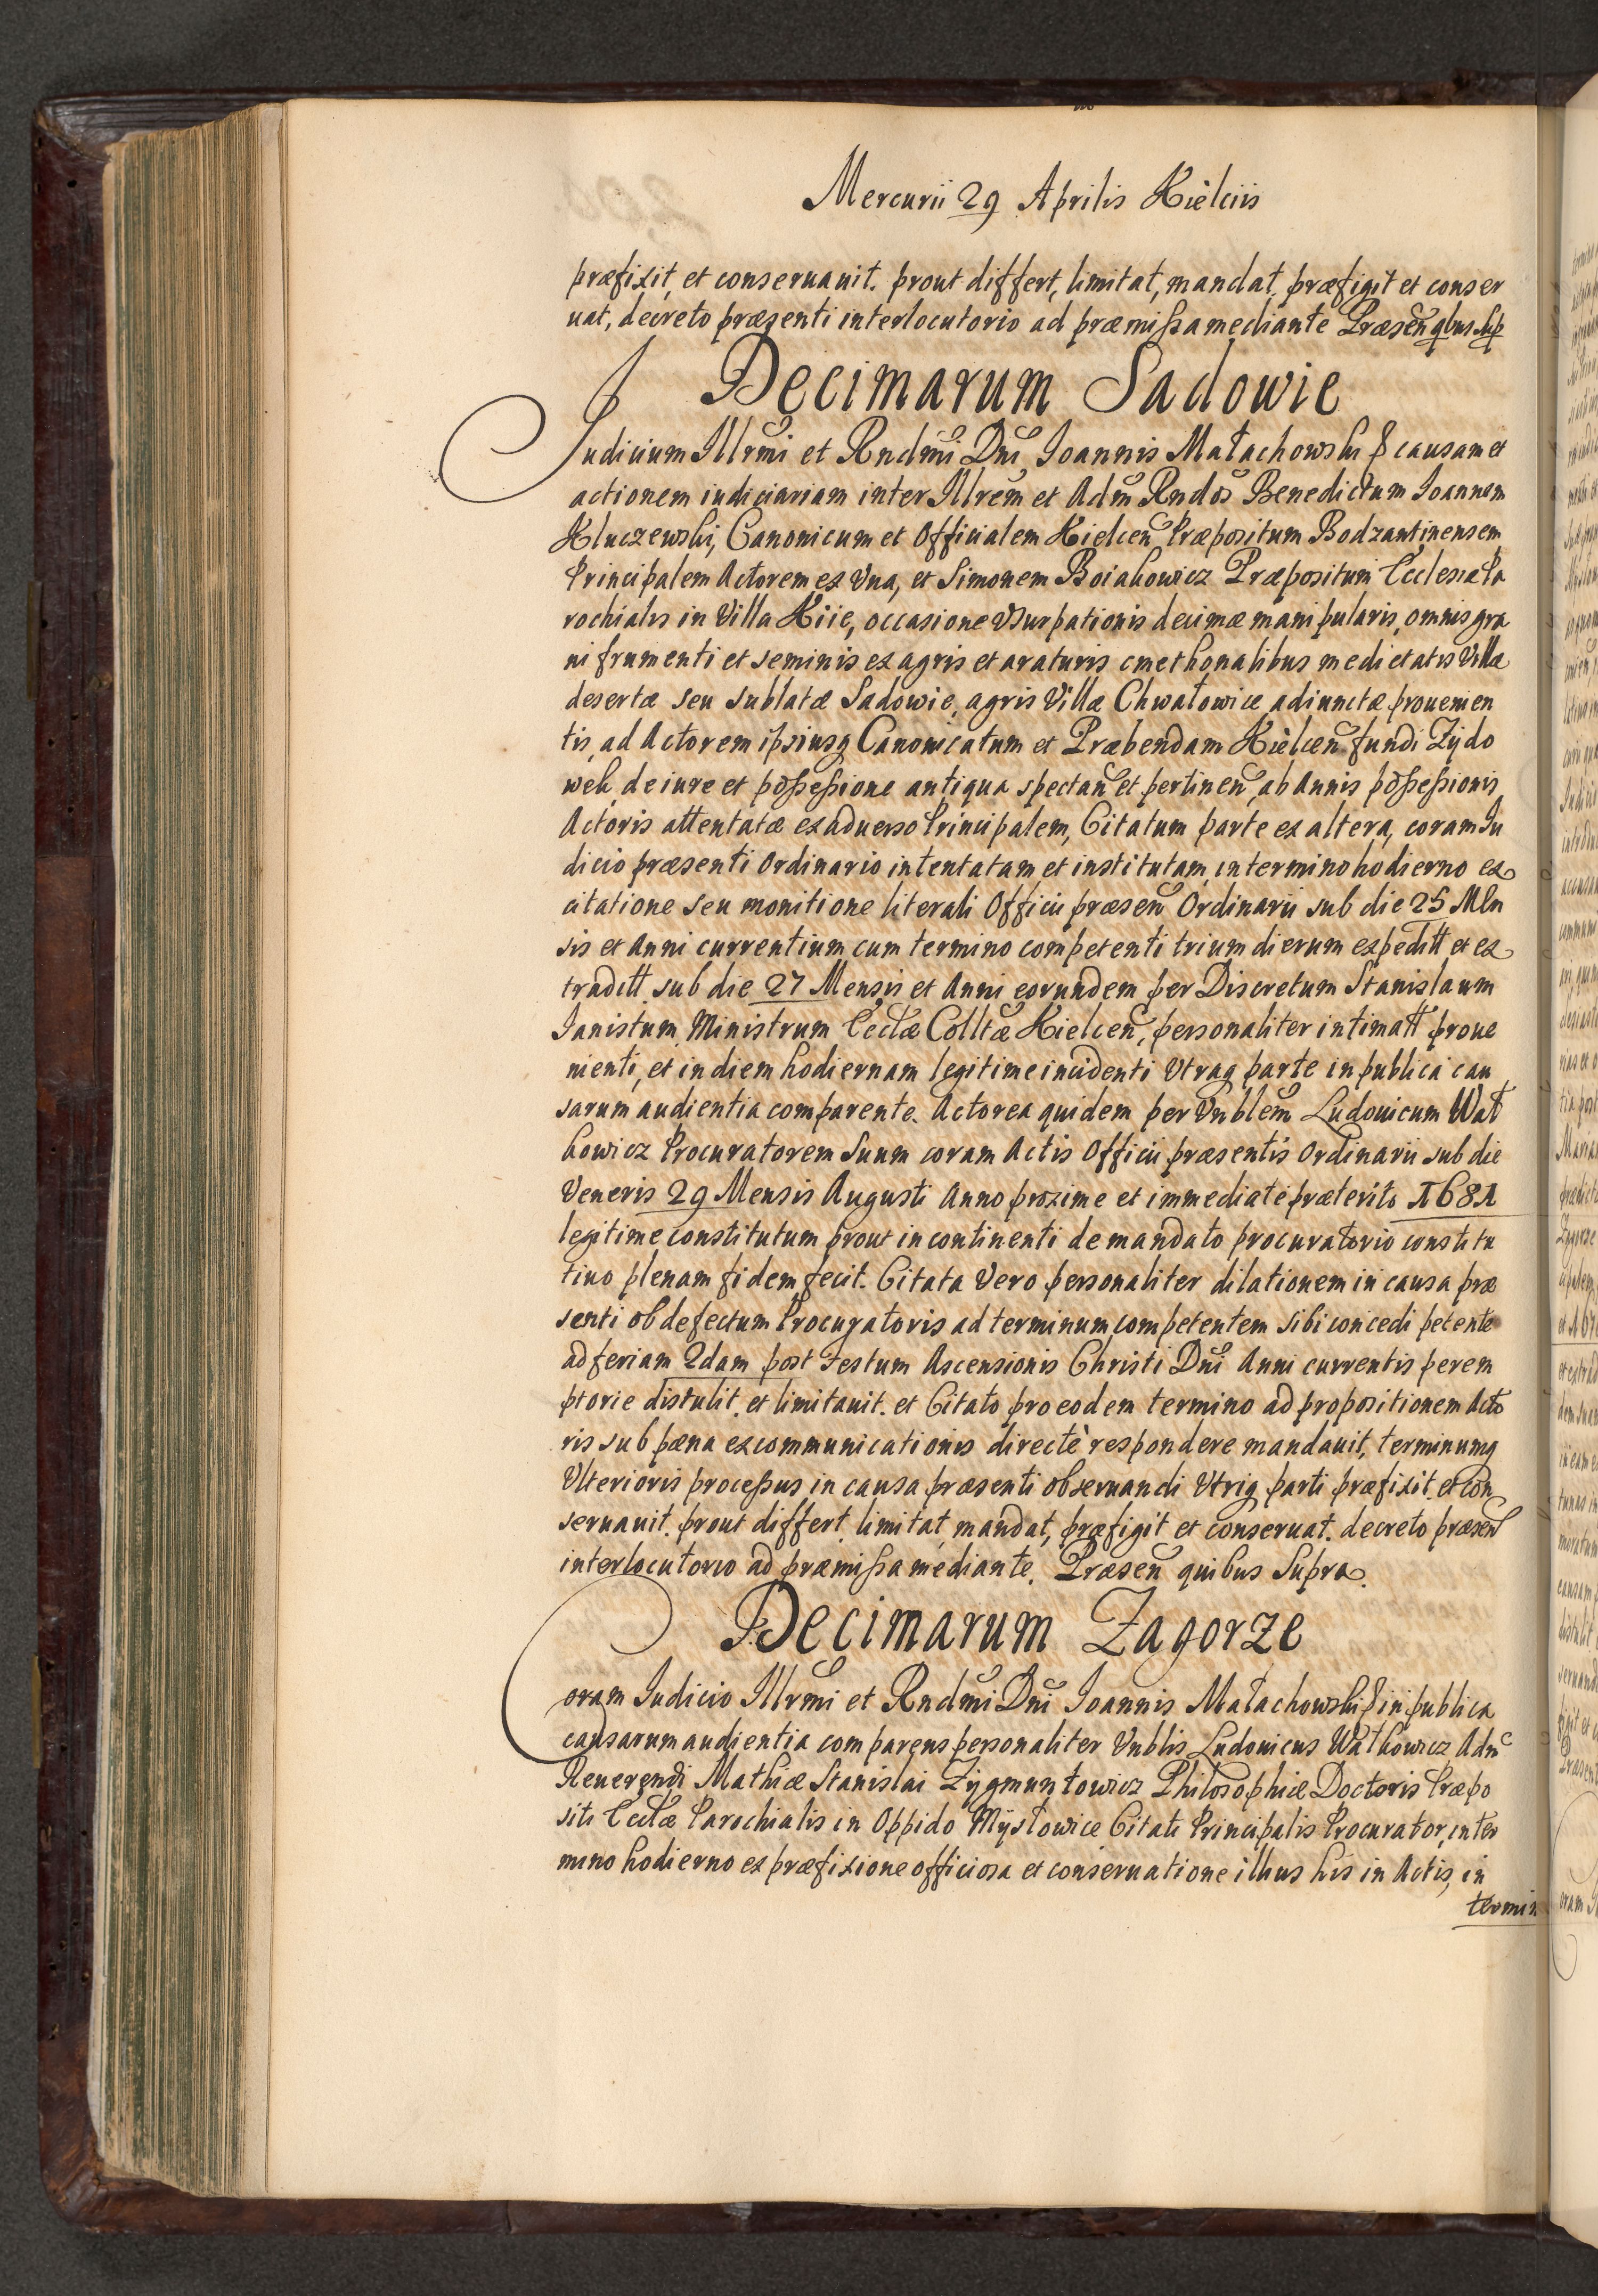 Mercurii 29 Aprilis Kielciis
præfixit, et conseruauit. prout differt, limitat, mandat, præfigit et conser
uat, decreto præsenti interlocutorio ad præmissa mediante Præsen̄ qbus sup
Decimarum Sadowie
Judicium Illrmi et Rndmi Dni Joannis Małachowski & causam et
actionem iudiciariam inter Illrem et Adm Rndos Benedictum Joannem
Kluczewski, Canonicum et Officialem Kielcen Præpositum Bodzantinensem
Principalem Actorem ex Vna, et Simonem Boiakowicz Præpositum Ecclesiæ Pa
rochialis in Villa Kiie, occasione Vsurpationis decimæ manipularis, omnis gra
ni frumenti et seminis ex agris et araturis cmethonalibus medietatis Villæ
desertæ seu sublatæ Sadowie, agris Villæ Chwałowice adiunctæ prouenien
tis, ad Actorem ipsiusq Canonicatum et Præbendam Kielcen fundi Zydo
wek de iure et possessione antiqua spectan et pertinen, ab Annis possessionis
Actoris attentatæ ex aduerso Principalem, Citatum parte ex altera, coram Iu
dicio præsenti Ordinario intentatam et institutam, in termino hodierno ex
citatione seu monitione literali Officii præsen Ordinarii sub die 25 Men
sis et Anni currentium cum termino competenti trium dierum expeditt et ex
traditt sub die 27 Mensis et Anni eorundem per Discretum Stanislaum
Janistum Ministrum Ecclæ Colltæ Kielcen, personaliter intimatt proue
nienti, et in diem hodiernam legitime incidenti Vtraq parte in publica cau
sarum audientia comparente. Actorea quidem per Vnblem Ludouicum Wał
kowicz Procuratorem Suum coram Actis Officii præsentis Ordinarii sub die
Veneris 29 Mensis Augusti Anno proxime et immediate præterito 1681
legitime constitutum prout in continenti de mandato procuratorio constitu
tiuo plenam fidem fecit. Citata Vero personaliter dilationem in causa præ
senti ob defectum Procuratoris ad terminum competentem sibi concedi petente
ad feriam 2dam post Festum Ascensionis Christi Dni Anni currentis perem
ptorie distulit, et limitauit. et Citato pro eodem termino ad propositionem Acto
ris sub pæna excommunicationis directè respondere mandauit, terminumq
Vlterioris processus in causa præsenti obseruandi Vtriq parti præfixit, et con
seruauit. prout differt limitat, mandat, præfigit et conseruat. decreto præsen
interlocutorio ad præmissa mediante. Præsen quibus Supra.
Decimarum Zagorze
Coram Iudicio Illrmi et Rndmi Dni Joannis Małachowski & in publica
causarum audientia comparens personaliter Vnblis Ludouicus Wałkowicz Adm
Reuerendi Mathiæ Stanislai Zygmuntowicz Philosophiæ Doctoris Præpo
siti Ecclæ Parochialis in Oppido Mysłowice Citati Principalis Procurator, in ter
mino hodierno ex præfixione officiosa et conseruatione illius his in Actis, in
termin